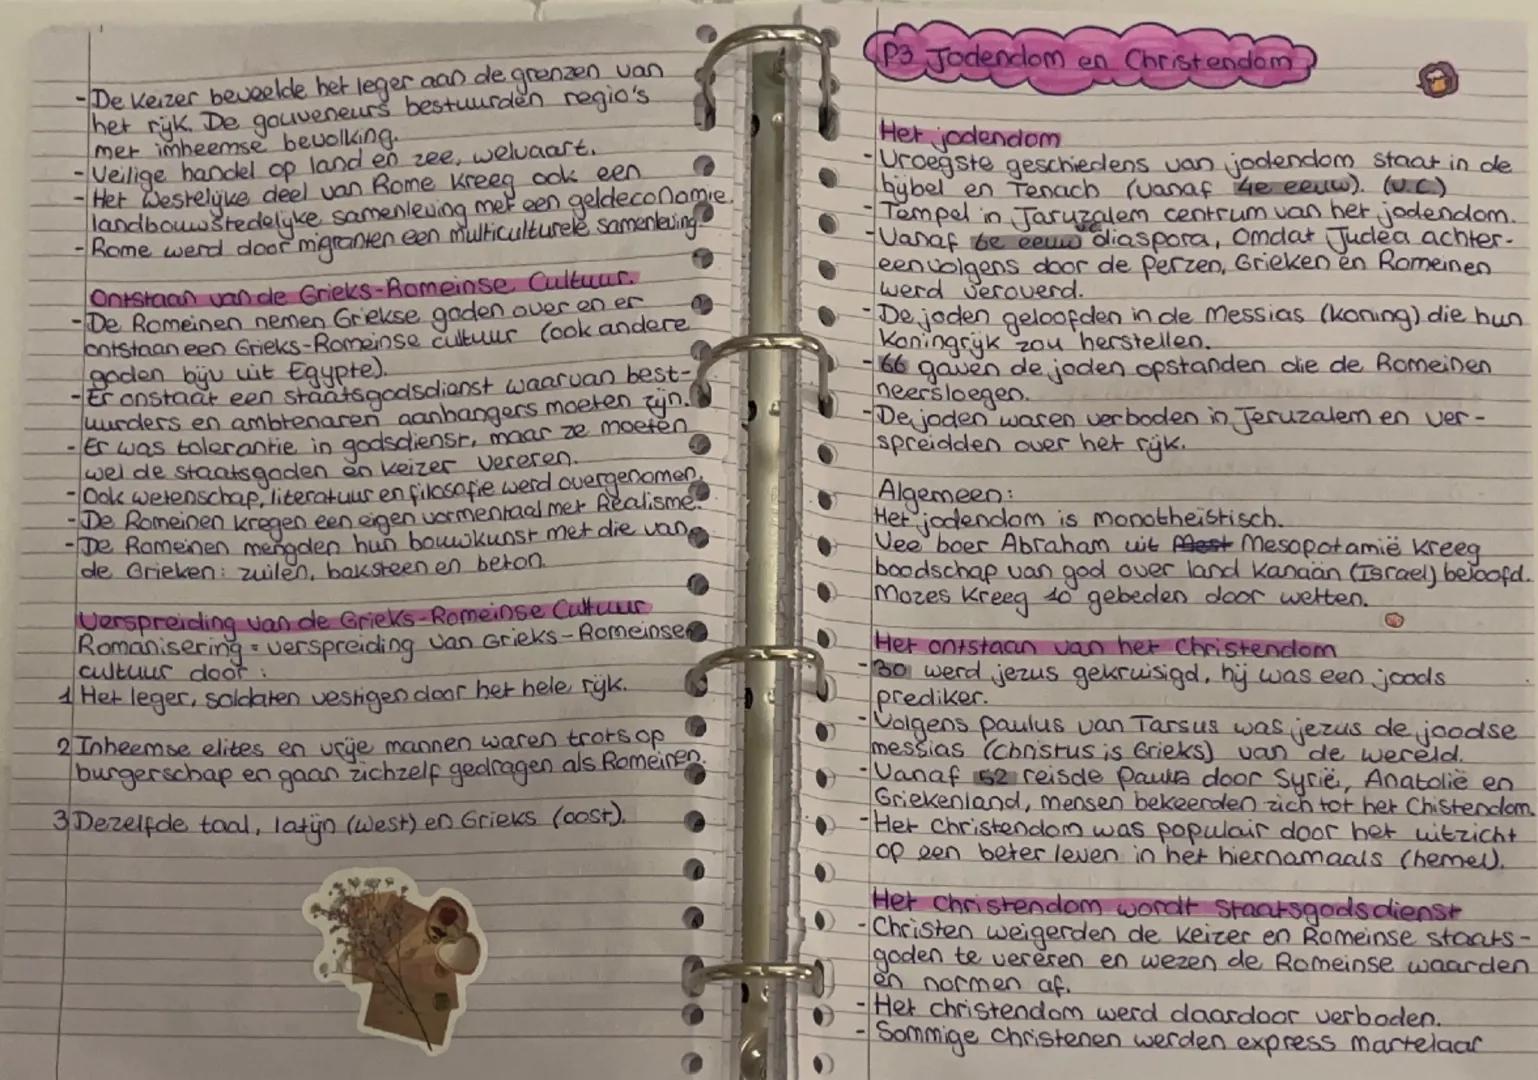 - De keizer beveelde het leger aan de grenzen van
het rijk. De gouveneurs bestuurden regio's
met imheemse bevolking.
- Veilige handel op land en zee, welvaart.
- Het westelijke deel van Rome kreeg ook een
landbouwstedelijke samenleving met een geldeconomie.
- Rome werd door migranten een multiculturele samenleving.
Ontstaan van de Grieks-Romeinse Cultuur.
- De Romeinen nemen Griekse goden over en er
ontstaan een Grieks-Romeinse cultuur (ook andere
goden bijv uit Egypte).
- Er onstaat een staatsgodsdienst waarvan best-
uurders en ambtenaren aanhangers moeten zijn.
- Er was tolerantie in godsdienst, maar ze moeten
wel de staatsgoden en keizer vereren.
- Ook wetenschap, literatuur en filosofie werd overgenomen.
- De Romeinen kregen een eigen vormentaal met Realisme.
- De Romeinen mengden hun bouwkunst met die van
de Grieken: zuilen, baksteen en beton.
Verspreiding van de Grieks-Romeinse Cultuur
Romanisering = verspreiding van Grieks-Romeinse
cultuur door :
1 Het leger, soldaten vestigen door het hele rijk.
2 Inheemse elites en vrije mannen waren trots op
burgerschap en gaan zichzelf gedragen als Romeinen.
3 Dezelfde taal, latijn (west) en Grieks (oost).
P3 Jodendom en Christendom
Het jodendom
- Vroegste geschiedens van jodendom staat in de
bijbel en Tenach (vanaf 4e eeuw). (v.C.)
- Tempel in Jaruzalem centrum van het jodendom.
- Vanaf 6e eeuw vC diaspora, omdat Judea achter-
eenvolgens door de Perzen, Grieken en Romeinen
werd veroverd.
- De joden geloofden in de Messias (koning) die hun
koningrijk zou herstellen.
- 66 gaven de joden opstanden die de Romeinen
neersloegen.
- De joden waren verboden in Jeruzalem en ver-
spreidden over het rijk.
Algemeen:
Het jodendom is monotheïstisch.
Vee boer Abraham uit Mest Mesopotamië kreeg
boodschap van god over land Kanaän (Israel) beloofd.
Mozes kreeg 10 gebeden door wetten.
Het ontstaan van het Christendom
- 30 werd jezus gekruisigd, hij was een joods
prediker.
- Volgens paulus van Tarsus was jezus de joodse
messias (Christus is Grieks) van de wereld.
- Vanaf 52 reisde Paulus door Syrië, Anatolië en
Griekenland, mensen bekeerden zich tot het Chistendom.
- Het Christendom was populair door het uitzicht
op een beter leven in het hiernamaals (hemel).
Het christendom wordt staatsgodsdienst
- Christen weigerden de keizer en Romeinse staats-
goden te vereren en wezen de Romeinse waarden
en normen af.
- Het christendom werd daardoor verboden.
- Sommige christenen werden express martelaar